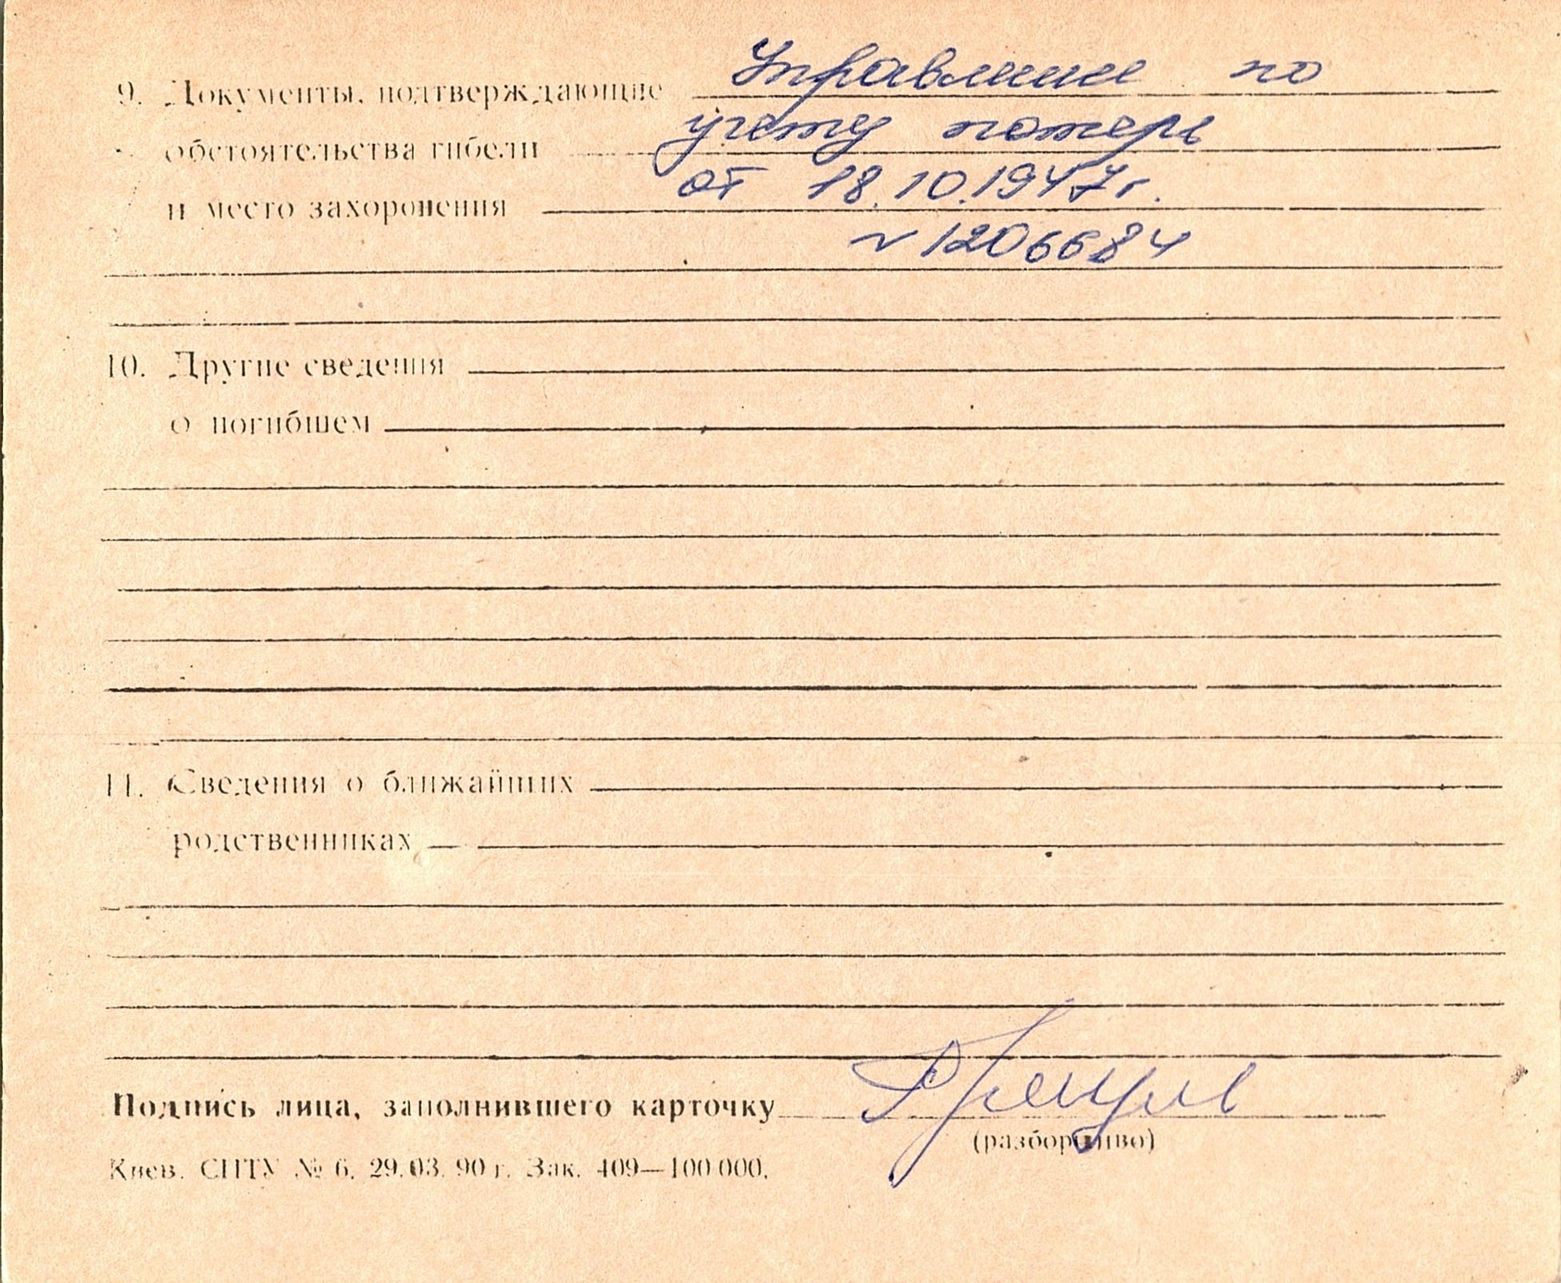 9. Документы, подтверждающие Управление по
обстоятельства гибели учету потерь
и место захоронения от 18.10.1947г.
N 1206684
10. Другие сведения
о погибшем
11. Сведения о ближайших
родственниках
Подпись лица, заполнившего карточку
(разборчиво)
Киев. СПТУ № 6. 29.03.90 г. Зак. 409—100 000.